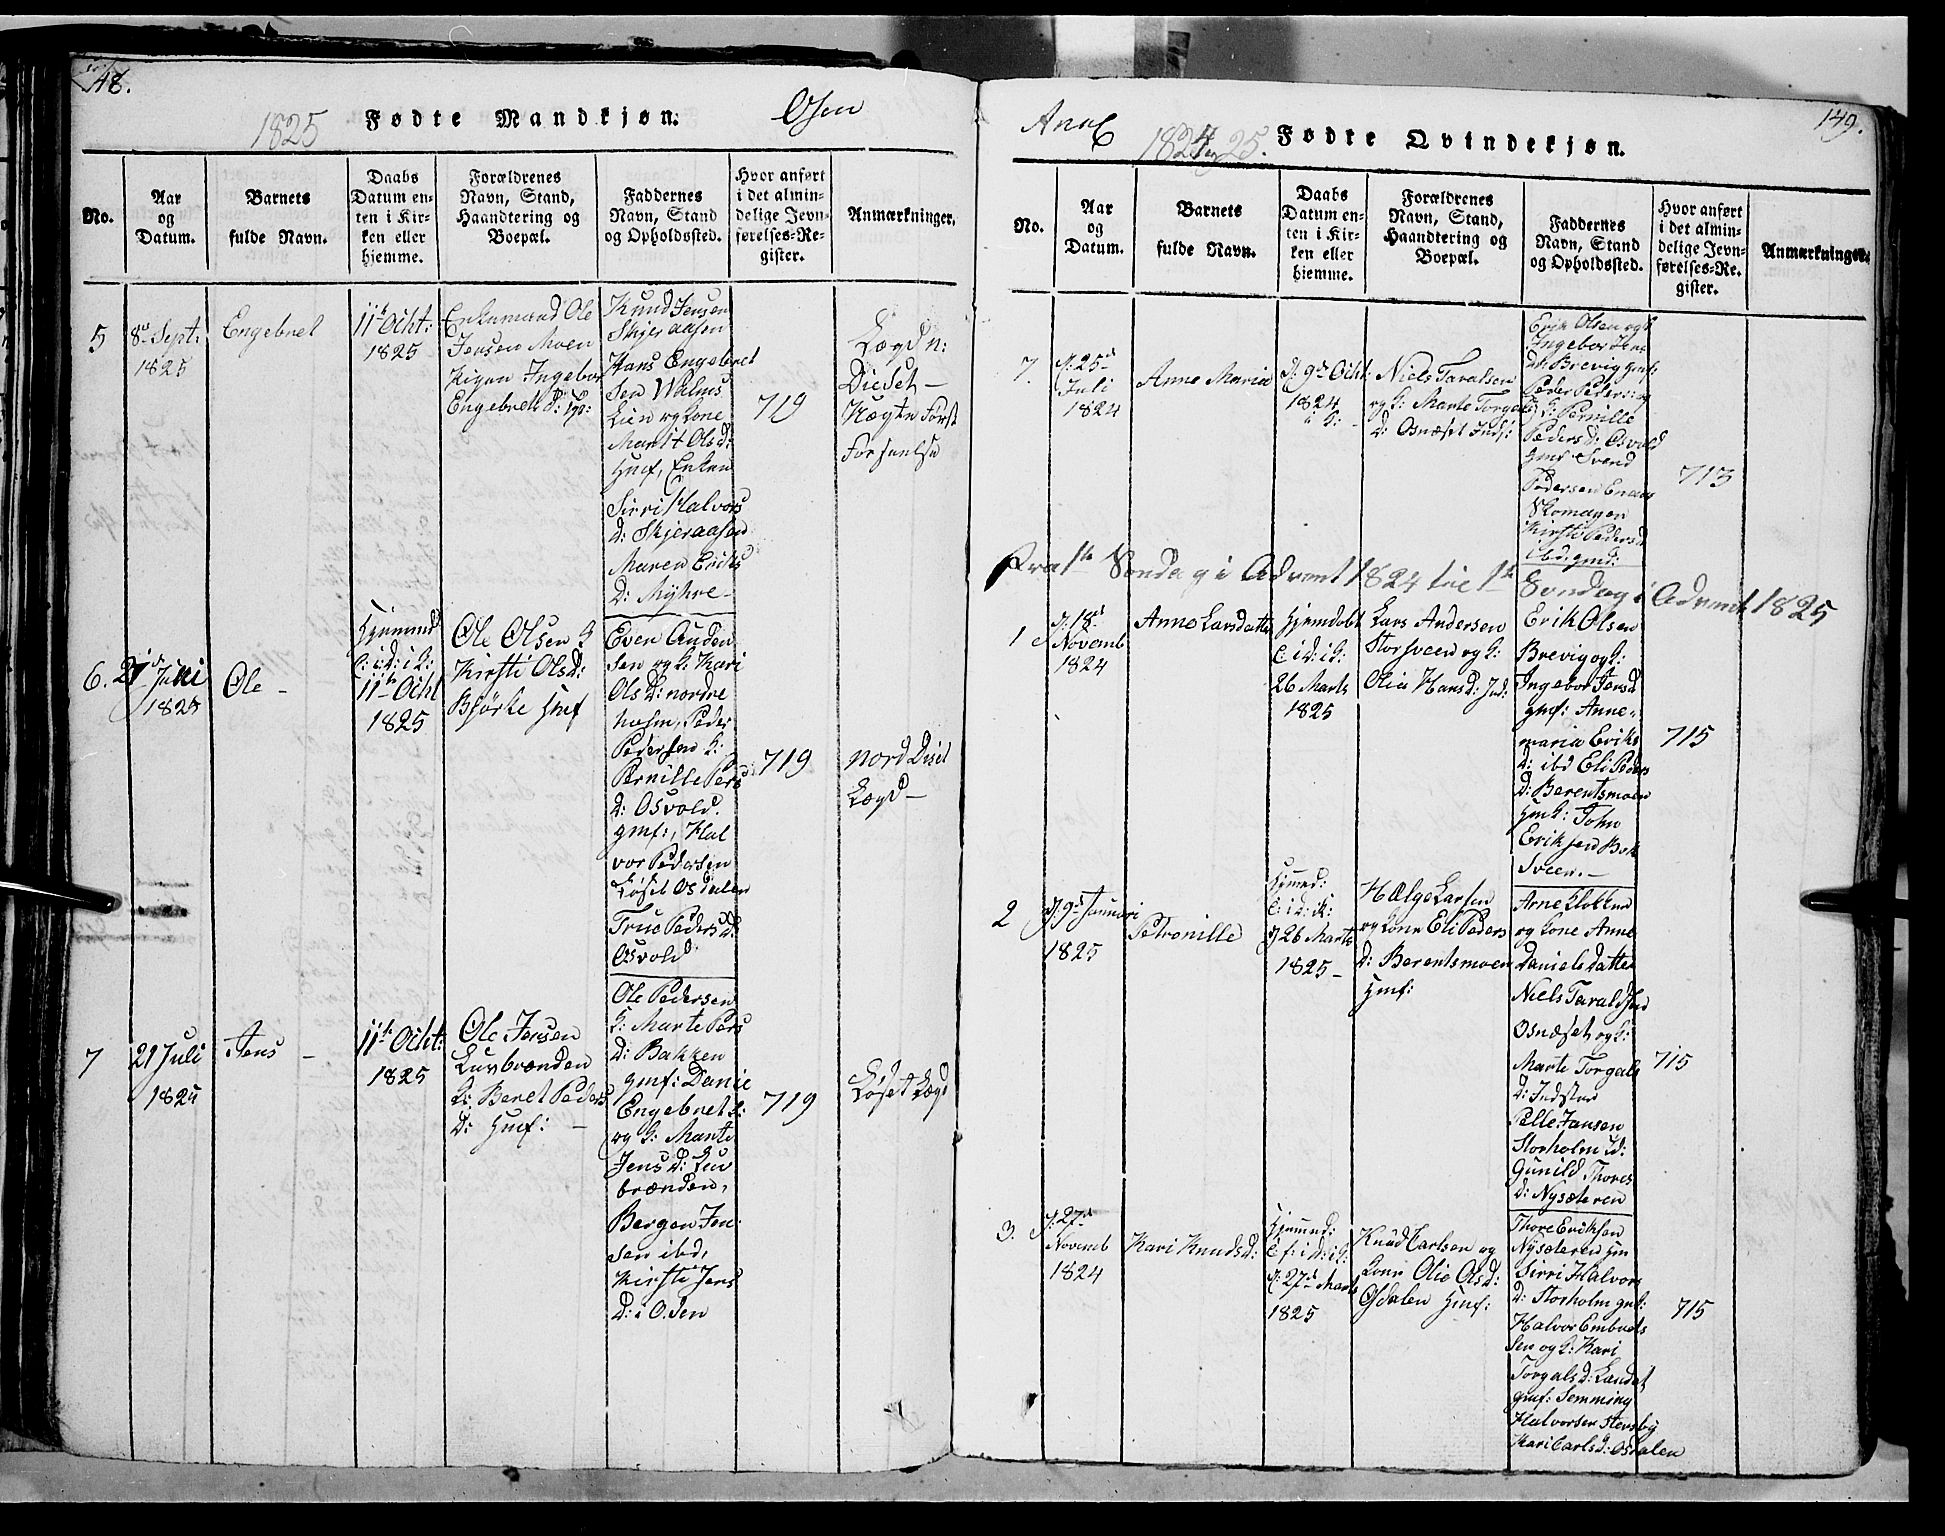 148.
1825 Fødte Mandkjøn. Osen
No.
Aar og Datum.
Barnets fulde Navn.
Daabs Datum enten i Kirken eller hjemme.
Forældrenes Navn, Stand, Haandtering og Boepæl.
Faddernes Navn, Stand og Opholdssted.
Hvor anført i det almindelige Jevnførelses-Register.
Anmærkninger.
5
8de Sept:
1825
Engebret
11te Octt:
1825
Enkemand Ole
Jensen Moen
Pigen Ingebor
Engebrets D:
Knud Jensen
Skjeraasen
Hans Engebret
Sen
Lien og Kone
Marit Ols d:
Hmf, Enken
Sirri Halvors
D: Skjeraasen
Maren Eriks
D: Myhre
719
Lægd n:
Diset
Først
6.
21de Juni
1825
Ole
Hjemmed
C: i D: i K:
11te Octt
1825
Ole Olsen K
Kirsti Ols D:
Bjørke Hmf
Even Auden
Sen og K: Kari
Ols D: nordre
holm, Peder
Pedersen K:
Pernille Pers
D: Osvold.
gmf:, Hal
vor Pedersen
Løset Osdalen
True Peders D:
Osvold
719
Nord Diset
Lægd
7
21 Juli
1825
Jens
11te Octt:
1825
Ole Jensen
Luvbrænden
K: Beret Peders
D: Hmf:
Ole Pedersen
K: Marte Pers
D: Bakken
gmf: Danie
Engebret S:
og K: Marte
Jens D: Luv
brænden,
Bergen Jen
sen ibd,
Kirsti Jens
D: i Osen
719
Løset Lægd
149.
Anno 1824 og 25. Fødte Qvindekjøn.
No.
Aar og Datum.
Barnets fulde Navn.
Daabs Datum enten i Kirken eller hjemme.
Forældrenes Navn, Stand, Haandtering og Boepæl.
Faddernes Navn, Stand og Opholdssted.
Hvor anført i det almindelige Jevnførelses-Register.
Anmærkninger.
7.
d: 25de
Juli
1824
Anne Maria
d: 9de Octt:
1824
i K:
Niels Taralsen
og K: Marte Torgals
D: Osnæset Inds:
Erik Olsen og K
Ingebor Jens
D: Brevig gmf:
Peder Peders: og
K: Pernille
Peders D: Osvold
gmf Svend
Pedersen
Skomager
Kirsti Peders d
ibd: gmd:
713
Fra 1te Søndag i Advent 1824 til 1te Søndag i Advent 1825
1
d: 18de
Novemb
1824
Anne Larsdatter
Hjemdøbt
C: i D: i K:
26 Marts
1825
Lars Andersen
Storsveen og K:
Olia Hans d: Ind:
Erik Olsen
Brevig og K:
Ingebor Jens d
gmf: Anne
maria Eriks
D: ibd Eli Peders
D: Berentsmoen
John
Eriksen Bek
Sveen.
715
2
d: 9de Januari
1825
Petronille
Hjemd:
C: i D: i K:
d 26 Marts
1825
Hælge Larsen
og Kone Eli Peders
D: Berentsmoen
Hmf:
Arne Klokken
og Kone Anne
Daniels Datter
Niels Taraldsen
Osnæset og K:
Marte Torgals
D: Indster
Pelle Jansen
Storholm id:
Gunild Thores
D: Nysæteren
715
3.
d: 27de
Novemb
1824
Kari Knuds D:
Hjemmd:
C: f: i D: i K:
d: 27de Marts
1825
Knud Carlsen og
Kone Olia Ols D:
Osdalen Hmf:
Thore Eriksen
Nysæteren Hm
Sirri Halvors
D: Storholm gmf:
Halvor Embrets
Sen og K: Kari
Torgals D: Lændet
gmf: Semming
Halvorsen Stensby
Kari Carls d: Osdalen
715